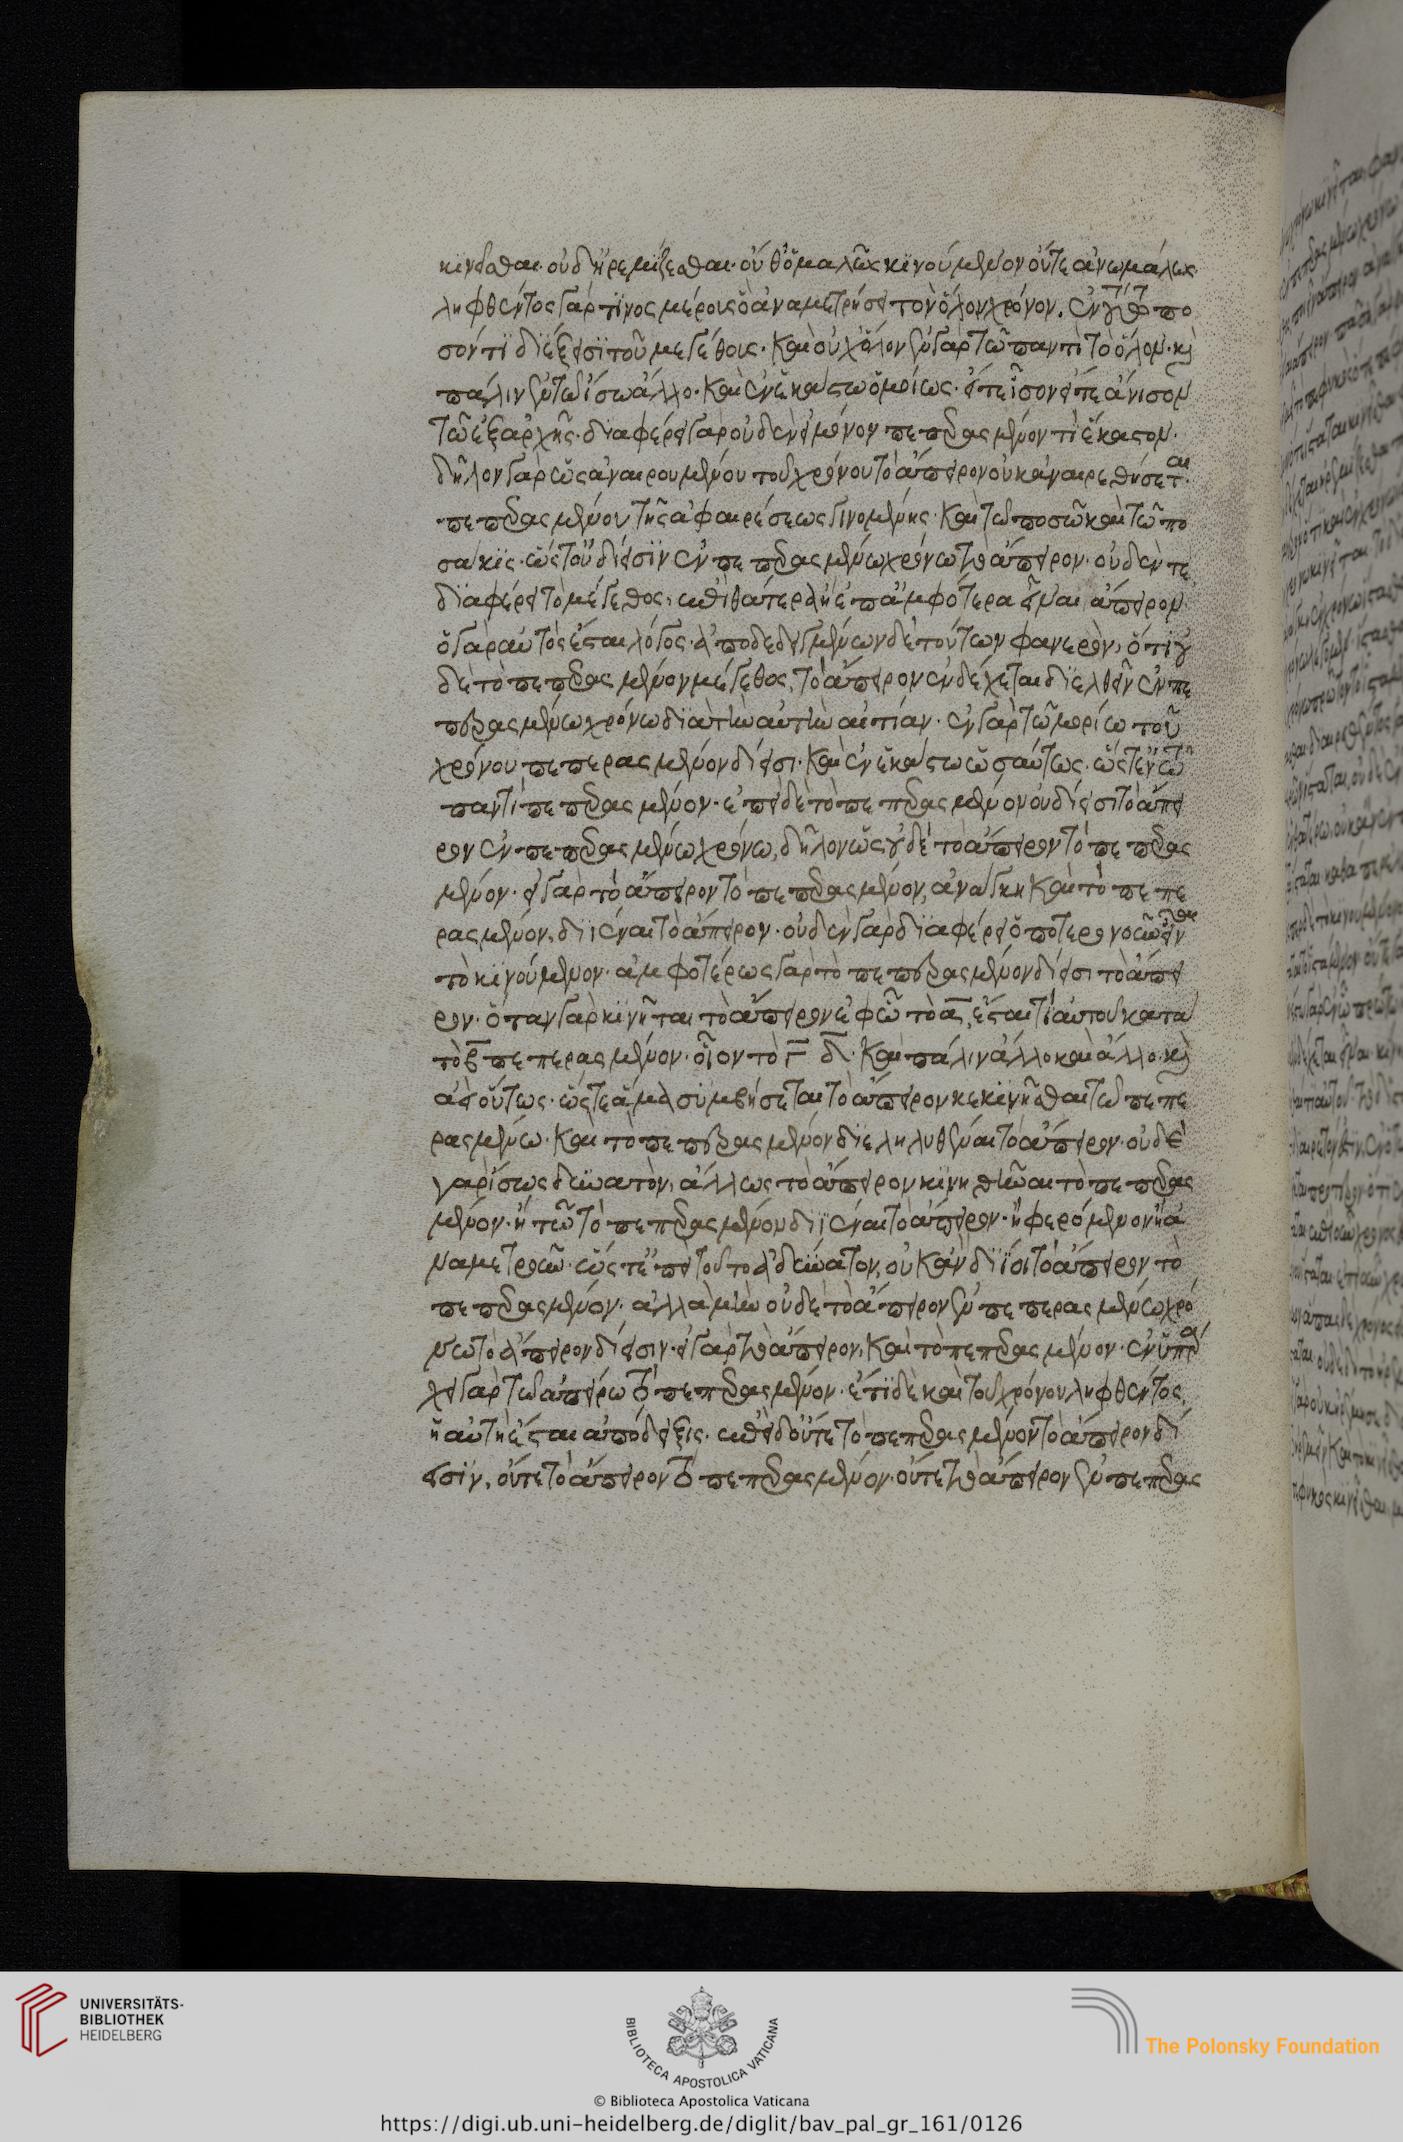 κινεῖσθαι· οὐδ' ἠρεμίζεσθαι· οὔθ' ὁμαλῶς κινούμενον οὔτε ἀνωμάλως·
ληφθέντος γάρ τινος μέρους ὃ ἀναμετρήσει τὸν ὅλον χρόνον. ἐν
σόν τι διέξεισι τοῦ μεγέθους· καὶ οὐχ ὅλον ἐν γὰρ τῶ παντὶ τὸ ὅλον· καὶ
πάλιν ἐν τῶ ἴσω ἄλλο· καὶ ἐν ἑκάστω ὁμοίως· εἴτε ἴσον εἴτε ἄνισον
τῶ ἐξαρχῆς· διαφέρει γὰρ οὐδὲν εἰ μόνον πεπερασμένον τι ἕκαστον·
δῆλον γὰρ ὡς ἀναιρουμένου τοῦ χρόνου τὸ ἄπειρον οὐκ ἀναιρεθήσεται·
πεπερασμένου τῆς ἀφαιρέσεως γινομένης· καὶ τῶ ποσῶ καὶ τῶ πο
σάκις· ὥστ' οὐ δίεισιν ἐν πεπερασμένω χρόνω τὸ ἄπειρον· οὐδέν τε
διαφέρει τὸ μέγεθος, ἐπὶ θάτερα ἢ ἐπ' ἀμφότερα εἶναι ἄπειρον
ὁ γὰρ αὐτὸς ἔσται λόγος· ἀποδεδειγμένων δὲ τούτων φανερὸν, ὅτι οὐ
δὲ τὸ πεπερασμένον μέγεθος, τὸ ἄπειρον ἐνδέχεται διελθεῖν ἐν πε
περασμένω χρόνω διὰ τὴν αὐτὴν αἰτίαν· ἐν γὰρ τῶ μορίω τοῦ
χρόνου πεπερασμένον δίεισι· καὶ ἐν ἑκάστω ὡσαύτως· ὥστ' ἐν τῶ
παντὶ πεπερασμένον· ἐπεὶ δὲ τὸ πεπερασμένον οὐ δίεισι τὸ ἄπει
ρον ἐν πεπερασμένω χρόνω, δῆλον ὡς οὐδὲ τὸ ἄπειρον τὸ πεπερασ
μένον· εἰ γὰρ τὸ ἄπειρον τὸ πεπερασμένον, ἀνάγκη καὶ τὸ πεπε
ρασμένον, διιέναι τὸ ἄπειρον· οὐδὲν γὰρ διαφέρει ὁποτερονοῦν εἶναι
τὸ κινούμενον· ἀμφοτέρως γὰρ τὸ πεπερασμένον δίεισι τὸ ἄπει
ρον· ὅταν γὰρ κινῆται τὸ ἄπειρον ἐφ' ὧ τὸ α, ἔσται τι αὐτοῦ κατὰ
τὸ β πεπερασμένον· οἷον τὸ γ δ· καὶ πάλιν ἄλλο καὶ ἄλλο· καὶ
ἀεὶ οὕτως· ὥστε ἅμα συμβήσεται τὸ ἄπειρον κεκινῆσθαι τὸ πεπε
ρασμένω· καὶ τὸ πεπερασμένον διεληλυθέναι τὸ ἄπειρον· οὐδὲ
γὰρ ἴσως δυνατὸν, ἄλλως τὸ ἄπειρον κινηθῆναι τὸ πεπερασ
μένον· ἢ τῶ τὸ πεπερασμένον διιέναι τὸ ἄπειρον· ἢ φερόμενον ἢ ἀ
ναμετροῦν· ὥστ' ἐπεὶ τοῦτο ἀδύνατον, οὐκ ἂν διίοι τὸ ἄπειρον τὸ
πεπερασμένον· ἀλλὰ μὴν οὐδὲ τὸ ἄπειρον ἐν πεπερασμένω χρό
νω τὸ ἄπειρον δίεισιν· εἰ γὰρ τὸ ἄπειρον, καὶ τὸ πεπερασμένον· ἐνυπάρ
χει γὰρ τῶ ἀπείρω τὸ πεπερασμένον· ἔτι δὲ καὶ τοῦ χρόνου ληφθέντος,
ἡ αὐτὴ ἔσται ἀπόδειξις· ἐπεὶ δ' οὔτε τὸ πεπερασμένον τὸ ἄπειρον δί
εισιν, οὔτε τὸ ἄπειρον τὸ πεπερασμένον· οὔτε τὸ ἄπειρον ἐν πεπερασ
UNIVERSITÄTS-
BIBLIOTHEK
HEIDELBERG
BIBLIOTECA APOSTOLICA VATICANA
The Polonsky Foundation
© Biblioteca Apostolica Vaticana
https://digi.ub.uni-heidelberg.de/diglit/bav_pal_gr_161/0126